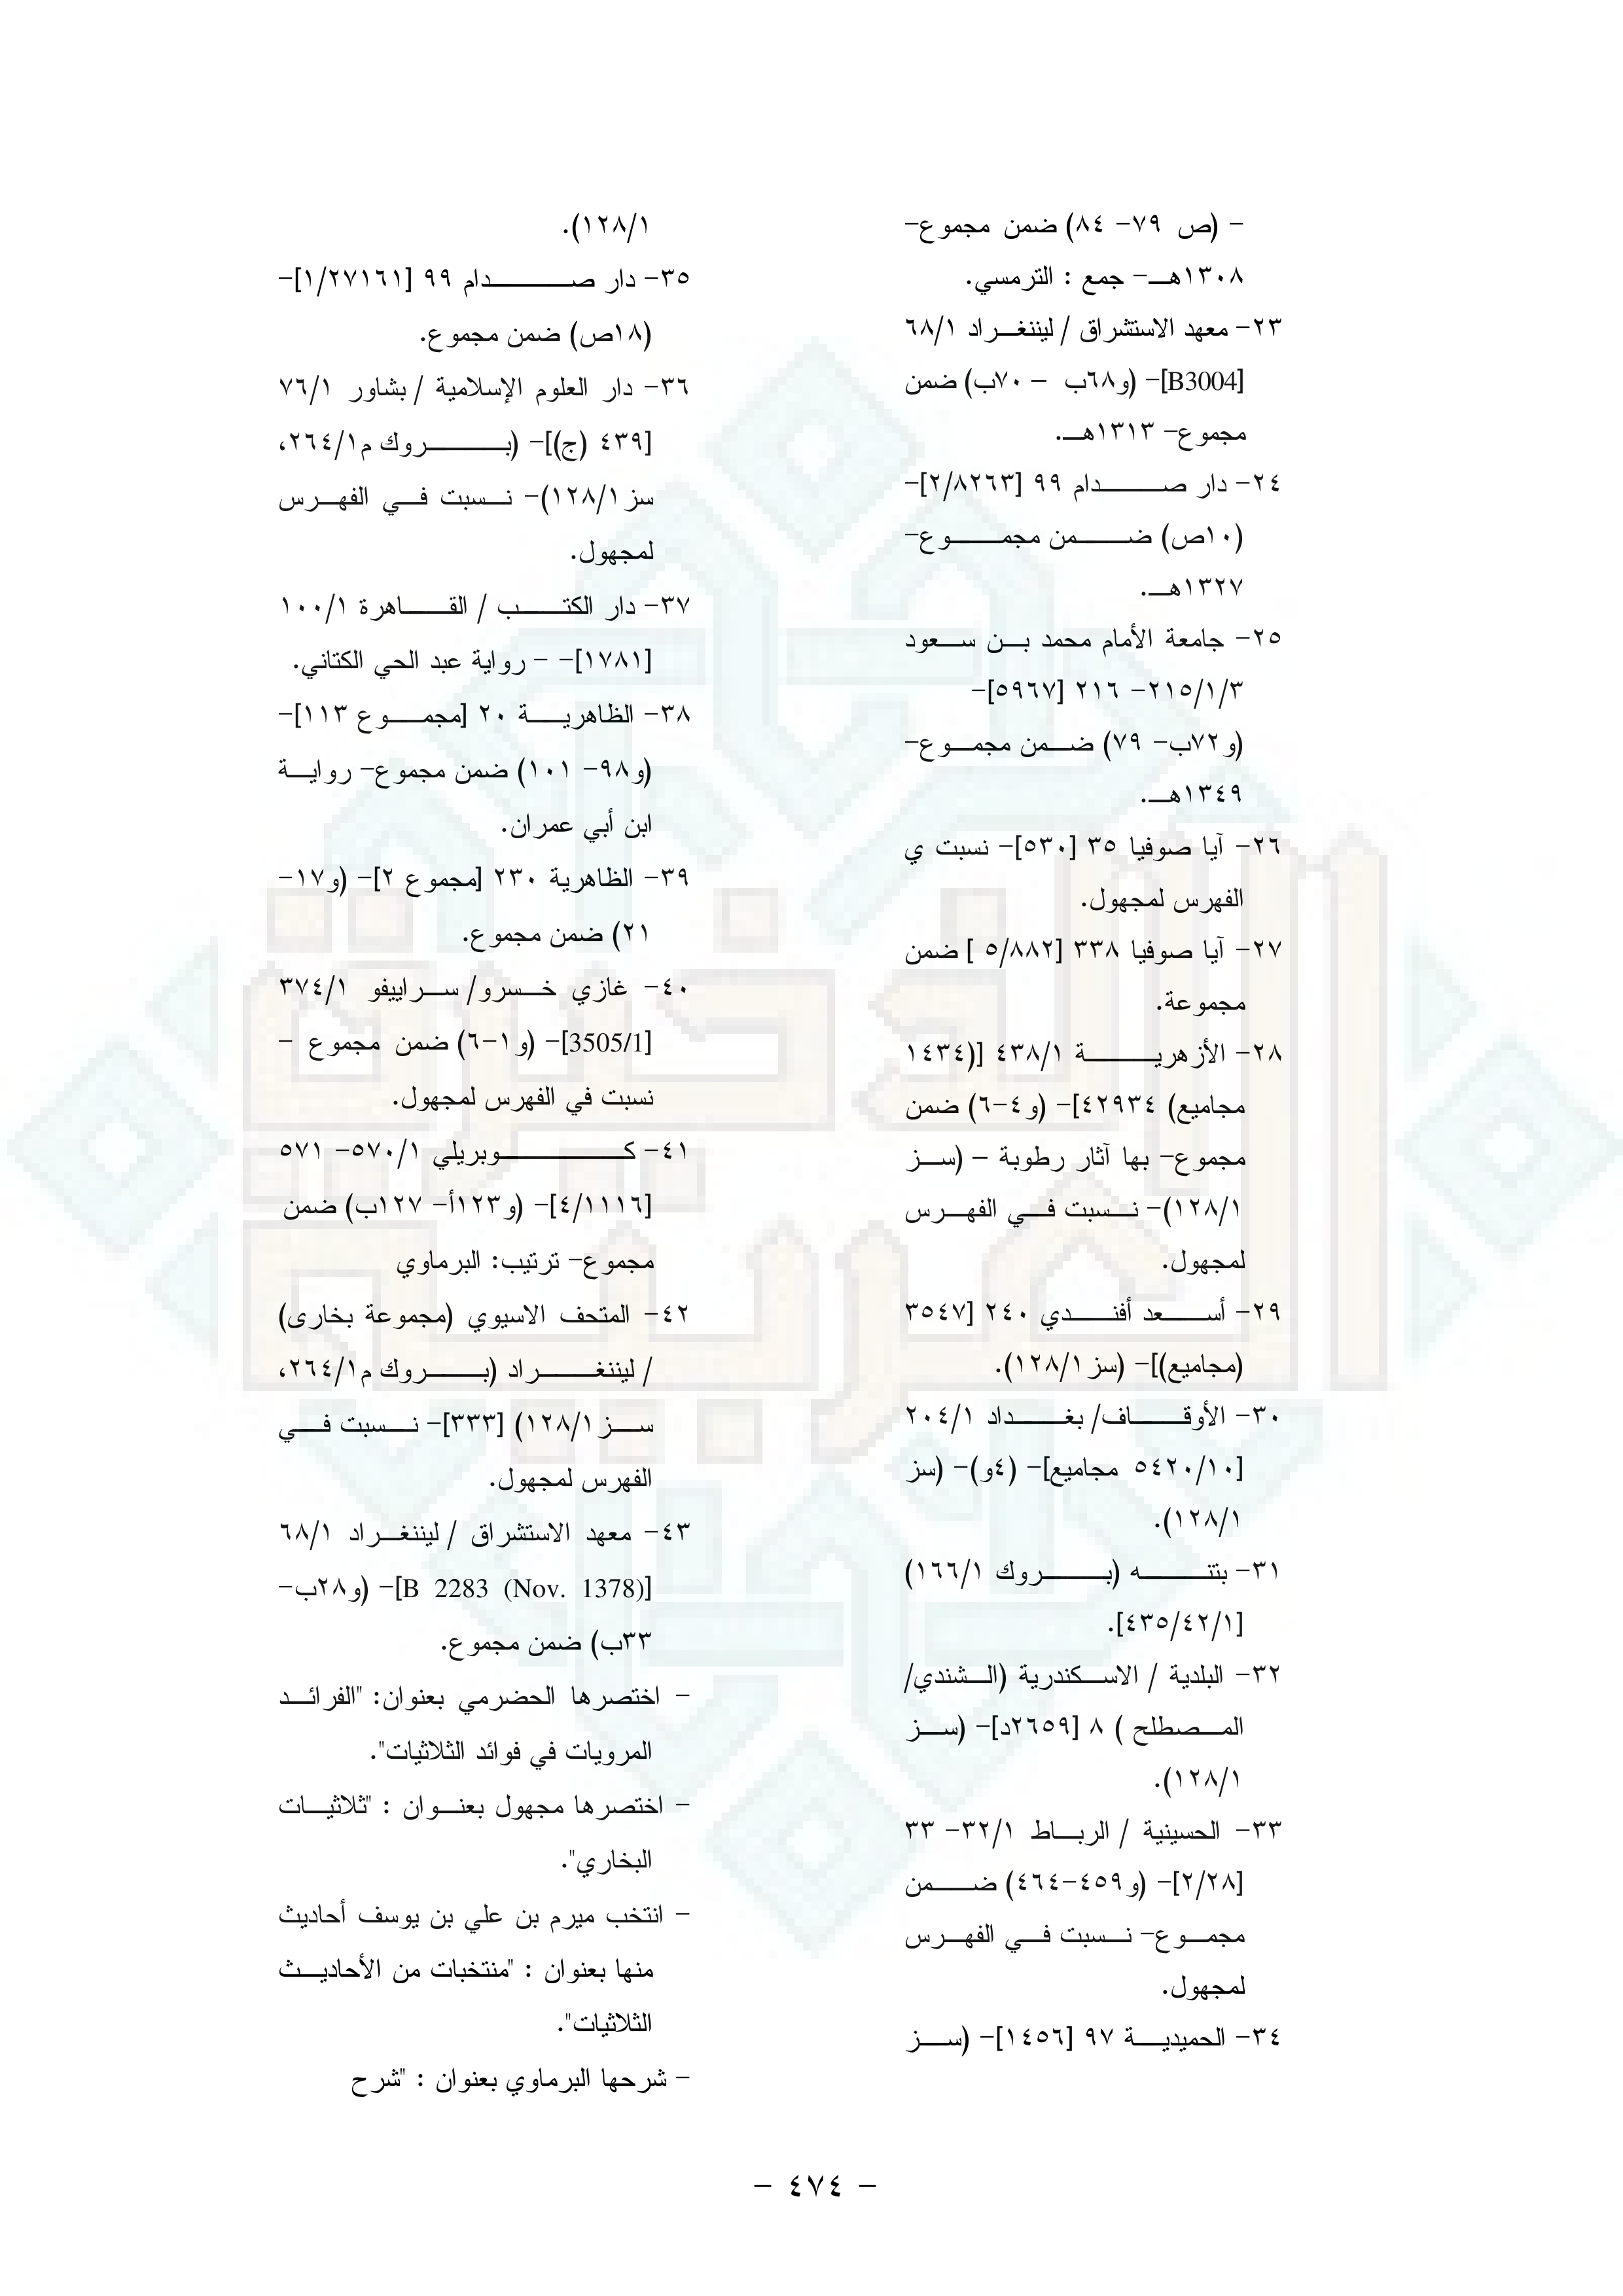 - (ص ٧٩- ٨٤) ضمن مجموع-
١٣٠٨هـ- جمع : الترمسي.
٢٣- معهد الاستشراق / ليننغراد ٦٨/١
[B3004]- (و٦٨ب – ٧٠ب) ضمن
مجموع- ١٣١٣هـ.
٢٤- دار صدام ٩٩ [٢/٨٢٦٣]-
(١٠ص) ضمن مجموع-
١٣٢٧هـ.
٢٥- جامعة الأمام محمد بن سعود
٢١٥/١/٣- ٢١٦ [٥٩٦٧]-
(و٧٢ب- ٧٩) ضمن مجموع-
١٣٤٩هـ.
٢٦- آيا صوفيا ٣٥ [٥٣٠]- نسبت ي
الفهرس لمجهول.
٢٧- آيا صوفيا ٣٣٨ [٥/٨٨٢ ] ضمن
مجموعة.
٢٨- الأزهرية ٤٣٨/١ [(١٤٣٤
مجاميع) ٤٢٩٣٤]- (و٤-٦) ضمن
مجموع- بها آثار رطوبة – (سز
١٢٨/١)- نسبت في الفهرس
لمجهول.
٢٩- أسعد أفندي ٢٤٠ [٣٥٤٧
(مجاميع)]- (سز ١٢٨/١).
٣٠- الأوقاف/ بغداد ٢٠٤/١
[٥٤٢٠/١٠ مجاميع]- (٤و)- (سز
١٢٨/١).
٣١- بتنه (بروك ١٦٦/١)
[٤٣٥/٤٢/١].
٣٢- البلدية / الاسكندرية (الشندي/
المصطلح ) ٨ [٢٦٥٩د]- (سز
١٢٨/١).
٣٣- الحسينية / الرباط ٣٢/١- ٣٣
[٢/٢٨]- (و٤٥٩-٤٦٤) ضمن
مجموع- نسبت في الفهرس
لمجهول.
٣٤- الحميدية ٩٧ [١٤٥٦]- (سز
١٢٨/١).
٣٥- دار صدام ٩٩ [١/٢٧١٦١]-
(١٨ص) ضمن مجموع.
٣٦- دار العلوم الإسلامية / بشاور ٧٦/١
[٤٣٩ (ج)]- (بروك م٢٦٤/١،
سز ١٢٨/١)- نسبت في الفهرس
لمجهول.
٣٧- دار الكتب / القاهرة ١٠٠/١
[١٧٨١]- - رواية عبد الحي الكتاني.
٣٨- الظاهرية ٢٠ [مجموع ١١٣]-
(و٩٨- ١٠١) ضمن مجموع- رواية
ابن أبي عمران.
٣٩- الظاهرية ٢٣٠ [مجموع ٢]- (و١٧-
٢١) ضمن مجموع.
٤٠- غازي خسرو/ سراييفو ٣٧٤/١
[3505/1]- (و١-٦) ضمن مجموع -
نسبت في الفهرس لمجهول.
٤١- كوبريلي ٥٧٠/١- ٥٧١
[٤/١١١٦]- (و١٢٣أ- ١٢٧ب) ضمن
مجموع- ترتيب: البرماوي
٤٢- المتحف الاسيوي (مجموعة بخارى)
/ ليننغراد (بروك م٢٦٤/١،
سز ١٢٨/١) [٣٣٣]- نسبت في
الفهرس لمجهول.
٤٣- معهد الاستشراق / ليننغراد ٦٨/١
[B 2283 (Nov. 1378)]- (و٢٨ب-
٣٣ب) ضمن مجموع.
- اختصرها الحضرمي بعنوان: "الفرائد
المرويات في فوائد الثلاثيات".
- اختصرها مجهول بعنوان : "ثلاثيات
البخاري".
- انتخب ميرم بن علي بن يوسف أحاديث
منها بعنوان : "منتخبات من الأحاديث
الثلاثيات".
- شرحها البرماوي بعنوان : "شرح
- ٤٧٤ -